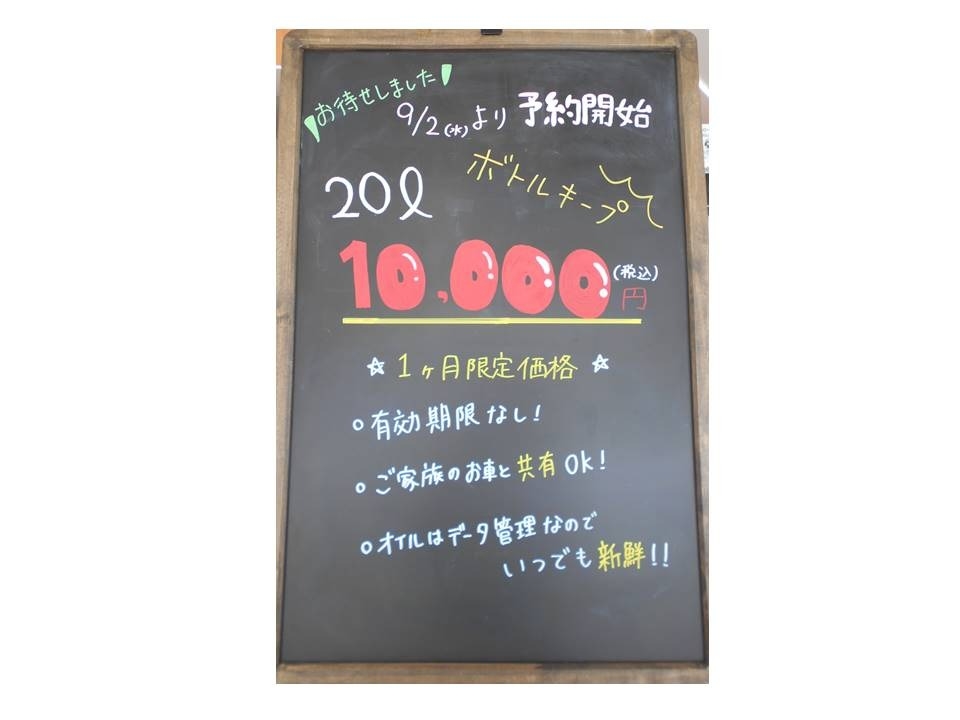 お待せしました
9/2(水)より予約開始
20ℓ ボトルキープ
10,000円(税込)
☆1ヶ月限定価格☆
○有効期限なし!
○ご家族のお車と共有OK!
○オイルはデータ管理なので
いつでも新鮮!!